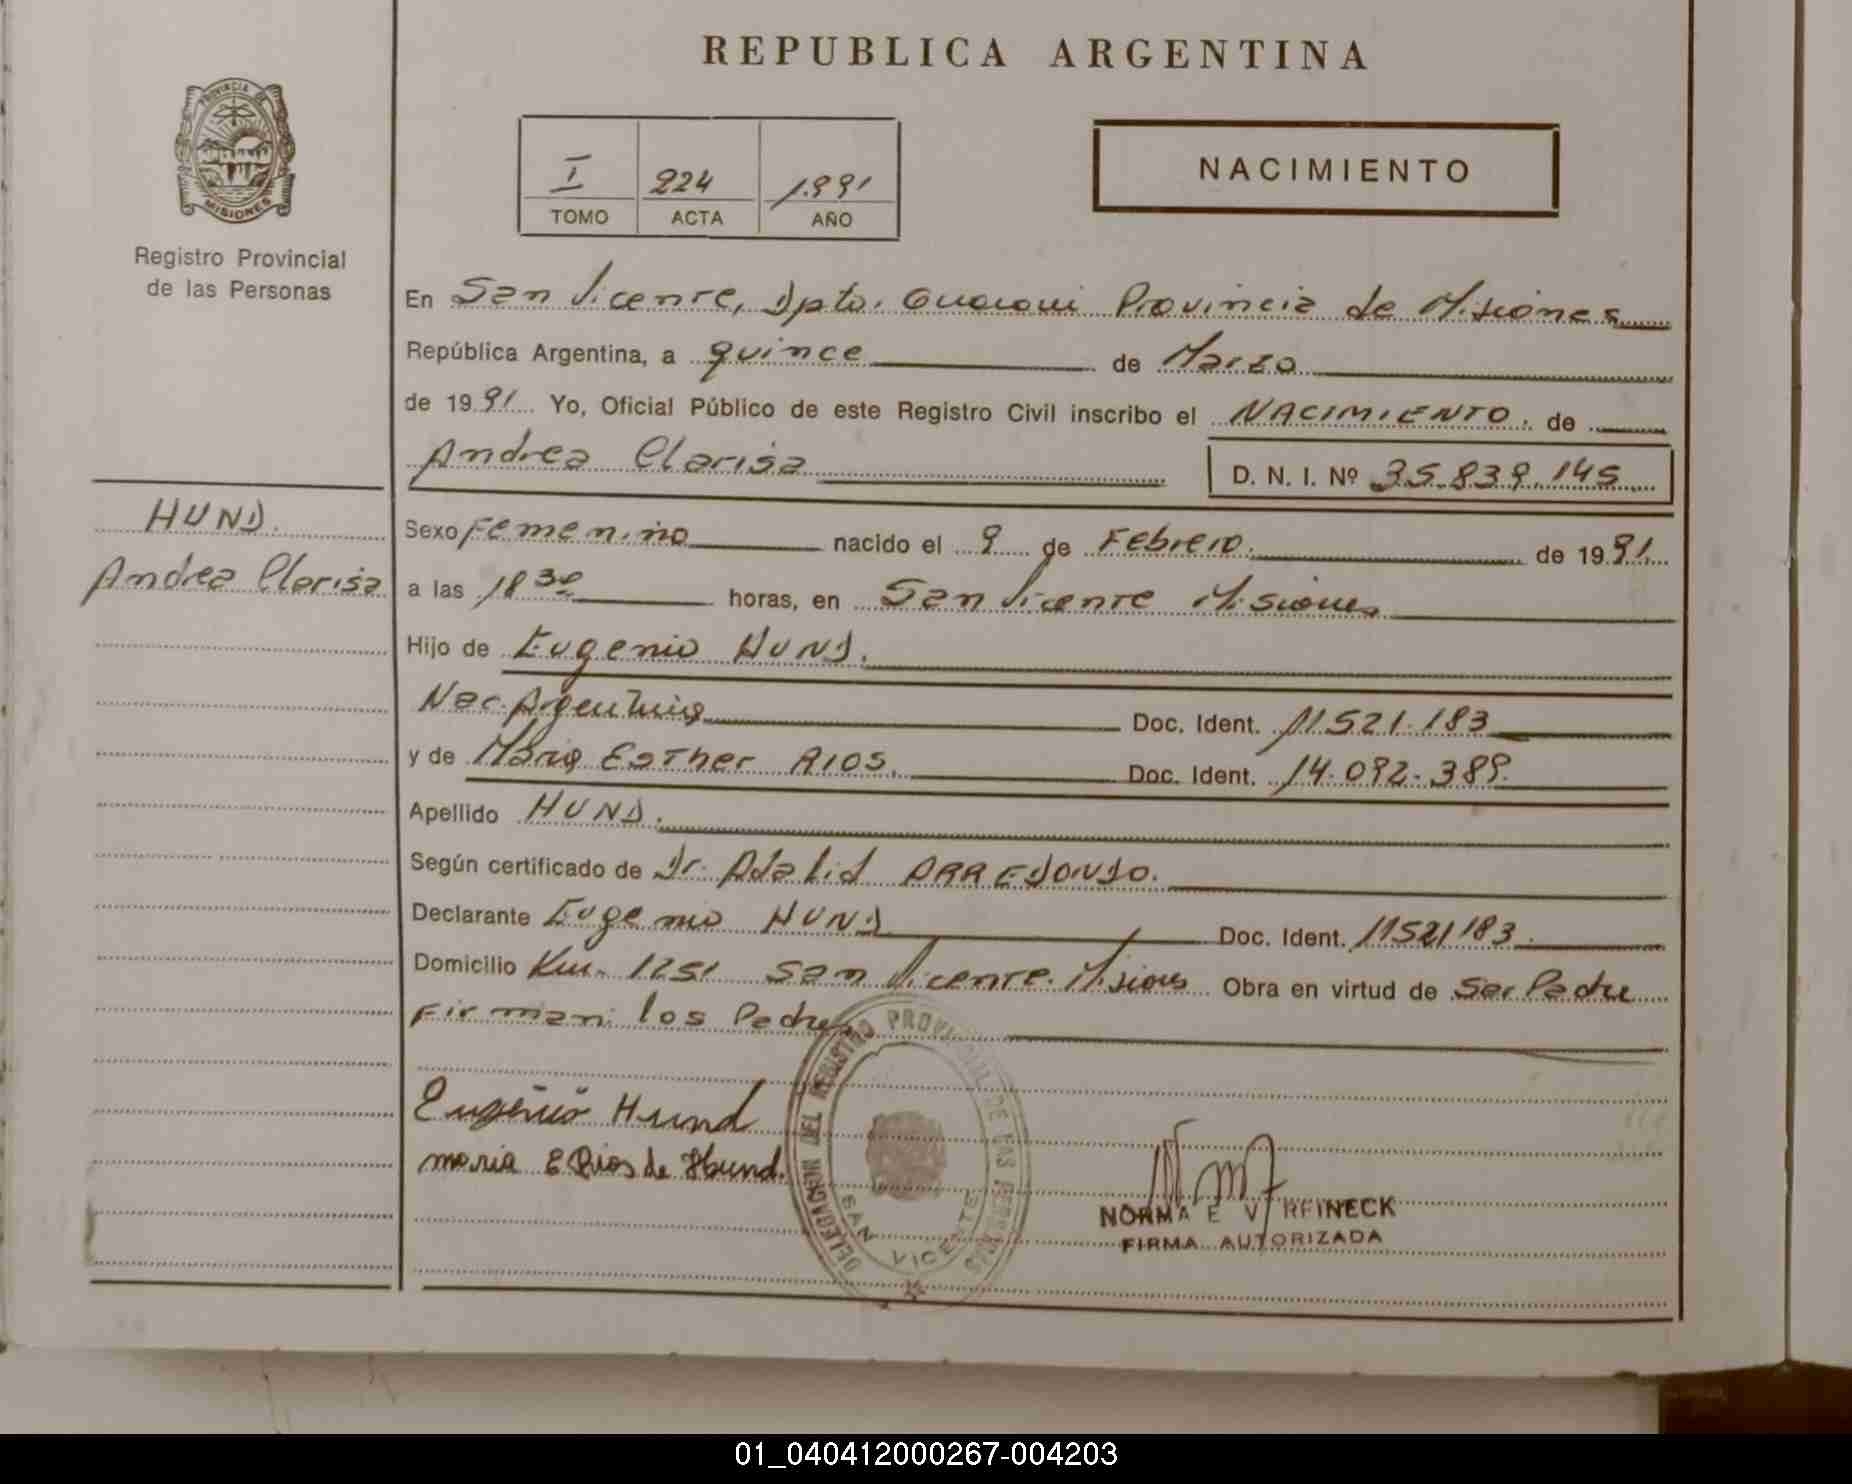 REPUBLICA ARGENTINA
PROVINCIA DE
MISIONES
Registro Provincial
de las Personas
I 224 1.991
TOMO ACTA AÑO
NACIMIENTO
En San Vicente, Dpto. Guarani Provincia de Misiones
República Argentina, a quince de Marzo
de 1991 Yo, Oficial Público de este Registro Civil inscribo el NACIMIENTO. de
Andrea Clarisa D. N. I. Nº 35.839.145
HUND.
Andrea Clarisa
Sexo Femenino nacido el 9 de Febrero. de 1991
a las 18 30 horas, en San Vicente Misiones
Hijo de Eugenio HUND.
Nac. Argentina Doc. Ident. 11.521.183
y de Maria Esther RIOS. Doc. Ident. 14.092.389.
Apellido HUND.
Según certificado de Dr. Adalid ARREDONDO.
Declarante Eugenio HUND Doc. Ident. 11521183.
Domicilio Km. 1251 San Vicente. Misiones Obra en virtud de Ser Padre
Firman: los Padres
Eugenio Hund
maria E Rios de Hund.
DELEGACION DEL REGISTRO PROVINCIAL DE LAS PERSONAS
SAN VICENTE
NORMA E V REINECK
FIRMA AUTORIZADA
01_040412000267-004203